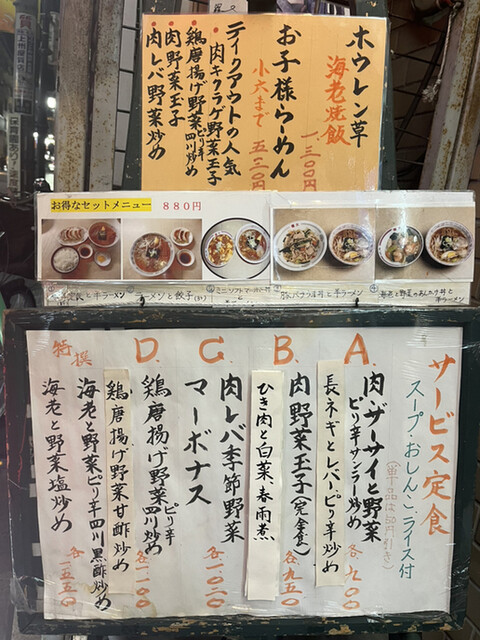 ホウレン草
海老炒飯
一、三〇〇円
お子様らーめん
小六まで 五三〇円
テイクアウトの人気
・肉キクラゲ野菜玉子
・鶏唐揚げ野菜ピリ辛四川炒め
・肉野菜玉子
・肉レバ野菜炒め
お得なセットメニュー 880円
ラーメンと餃子
豚バラつゆ丼と半ラーメン
海老と野菜のあんかけ丼と半ラーメン
サービス定食
スープ・おしんこ・ライス付
(単品は50円引き)
A.
肉・ザーサイと野菜
ピリ辛サンラー炒め
長ネギとレバーピリ辛炒め
各九〇〇
B.
肉野菜玉子(完全食)
ひき肉と白菜、春雨煮
各九五〇
C.
肉レバ季節野菜
マーボナス
各一〇二〇
D.
鶏唐揚げ野菜ピリ辛四川炒め
鶏唐揚げ野菜甘酢炒め
各一一〇〇
特撰
海老と野菜ピリ辛四川黒酢炒め
海老と野菜塩炒め
各一五五〇